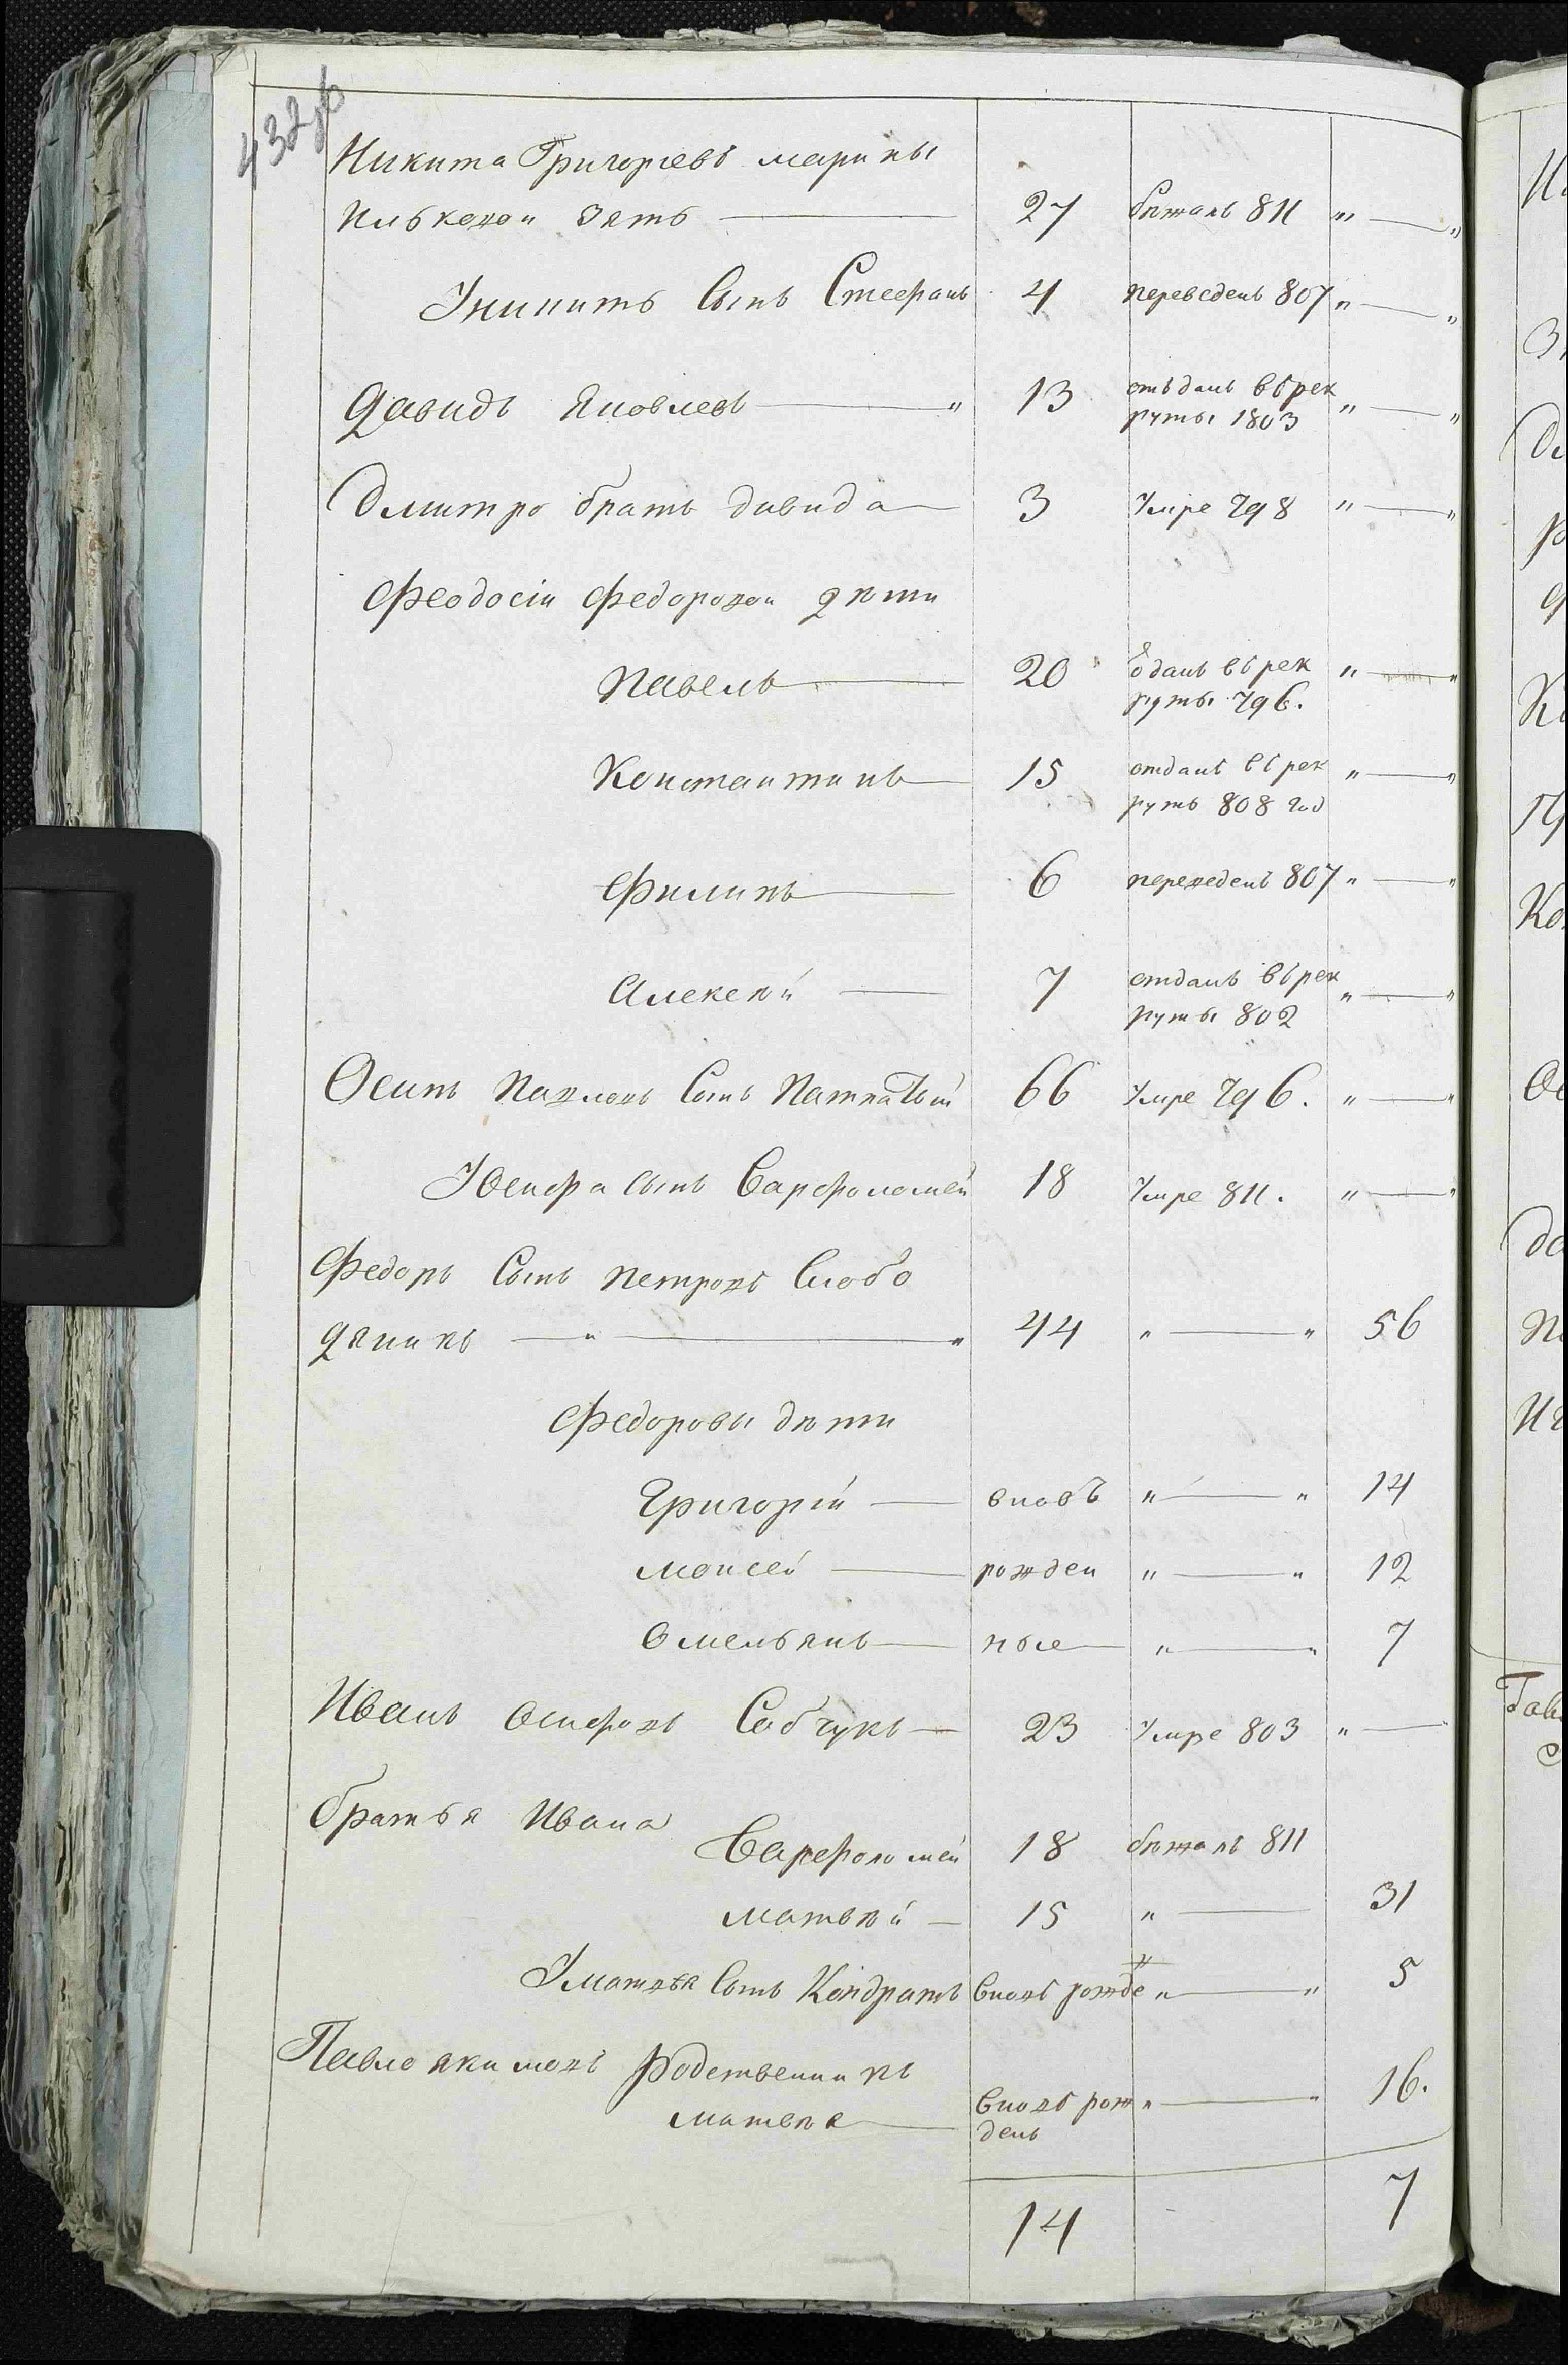 432об
Никита Григориевъ марины
Ильковои Зять — 27 бѣжалъ 811 „ — „
У Никиты Сынъ Стефанъ 4 переведенъ 807 „ — „
Давидъ Яковлевъ — „ 13 отъданъ въ рек
руты 1803 „ — „
Дмитро братъ давида — 3 Умре 798 „ — „
Феодосіи Федоровои дѣти
Павелъ — 20 одданъ въ рек „ — „
руты 796.
Константинъ — 15 отданъ въ рек „ — „
рутъ 808 год
Филипъ — 6 переведенъ 807 „ — „
Алексѣй — 7 отданъ въ рек
руты 802 „ — „
Осипъ Павловъ Сынъ 66 Умре 796. „ — „
У Осифа сынъ Варфоломей 18 Умре 811. „ — „
Федоръ Сынъ Петровъ Слобо
дяникъ — „ — „ 44 „ — „ 56
Федоровы дѣти
Григорій — вновъ „ — „ 14
Моисей — рожден „ — „ 12
Омельянъ — ные — „ — „ 7
Иванъ Осифовъ Собчукъ — 23 Умре 803 „ —
братья Ивана
Варфоломей 18 бѣжалъ 811
Матвѣй — 15 „ — 31
У Матвѣя Сынъ Кондратъ вновъ рожде
н „ — „ 5
Павло якимовъ Родственникъ
Матвѣя — вновъ рож „ — „ 16.
денъ
14 7